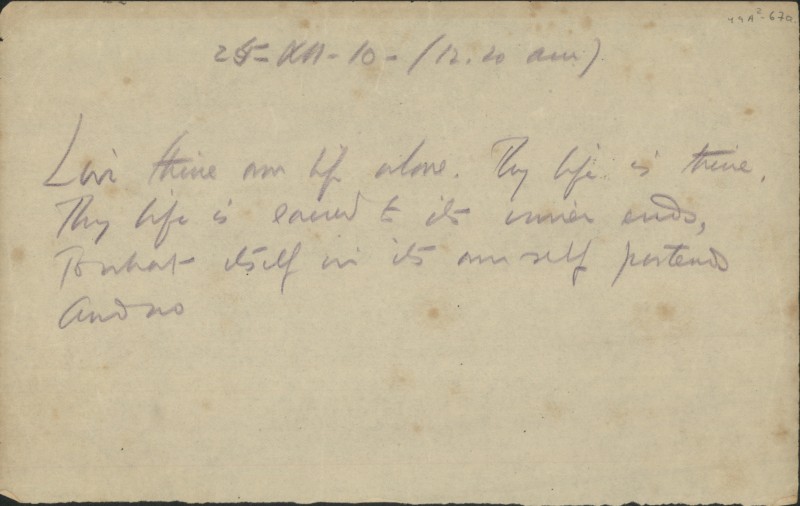 49A²-67a
25-XII-10-(12.20 am).
Live thine own life alone. Thy life is thine,
Thy life is sacred to its inner ends,
To what itself in its own self portends
And so